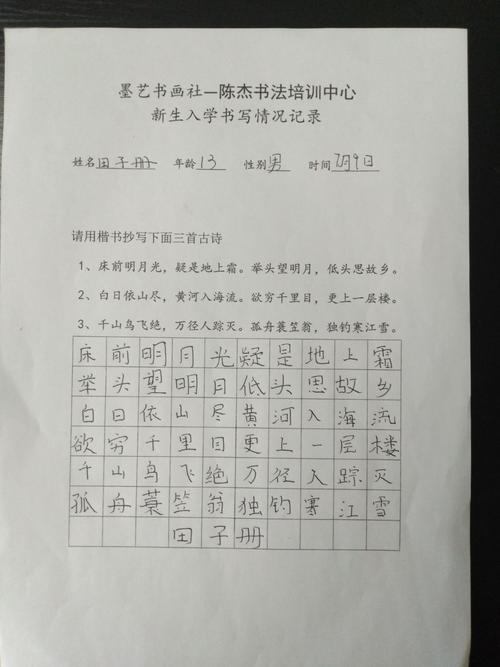 墨艺书画社—陈杰书法培训中心
新生入学书写情况记录
姓名田子册 年龄13 性别男 时间7月9日
请用楷书抄写下面三首古诗
1、床前明月光，疑是地上霜。举头望明月，低头思故乡。
2、白日依山尽，黄河入海流。欲穷千里目，更上一层楼。
3、千山鸟飞绝，万径人踪灭。孤舟蓑笠翁，独钓寒江雪。
床前明月光疑是地上霜
举头望明月低头思故乡
白日依山尽黄河入海流
欲穷千里目更上一层楼
千山鸟飞绝万径人踪灭
孤舟蓑笠翁独钓寒江雪
田子册